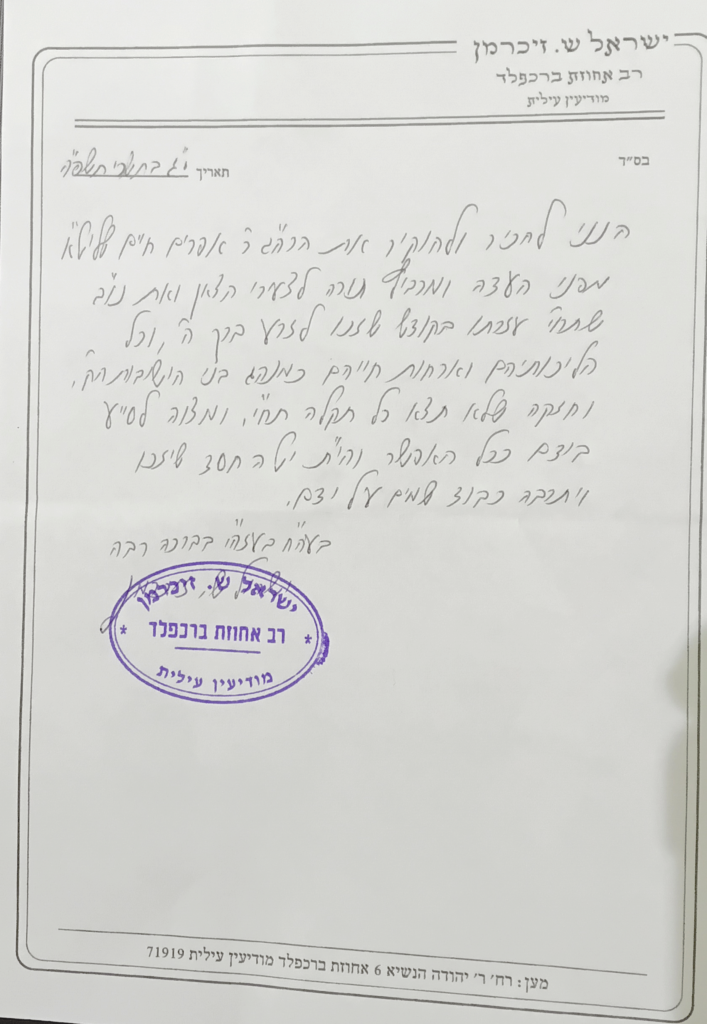 ישראל ש. זיכרמן
רב אחוזת ברכפלד
מודיעין עילית
בס״ד
תאריך י״ג בתשרי תשפ״ה
הנני להכיר ולהוקיר את הרה״ג ר' אפרים חיים שליט״א
מפני העדה ומרביץ תורה לצעירי הצאן ואת נו״ב
שתחי' עזרתו בקודש שזכו לזרע ברך ה', וכל
הליכותיהם וארחות חייהם כמנהג בני הישיבות הק',
וחזקה שלא תצא כל תקלה תח״י, ומצוה לסייע
בידם ככל האפשר והי״ת יטה חסד שיזכו
ויתרבה כבוד שמים על ידם.
בעה״ח בעזה״י בברכה רבה
ישראל ש. זיכרמן
רב אחוזת ברכפלד
מודיעין עילית
מען: רח' ר' יהודה הנשיא 6 אחוזת ברכפלד מודיעין עילית 71919